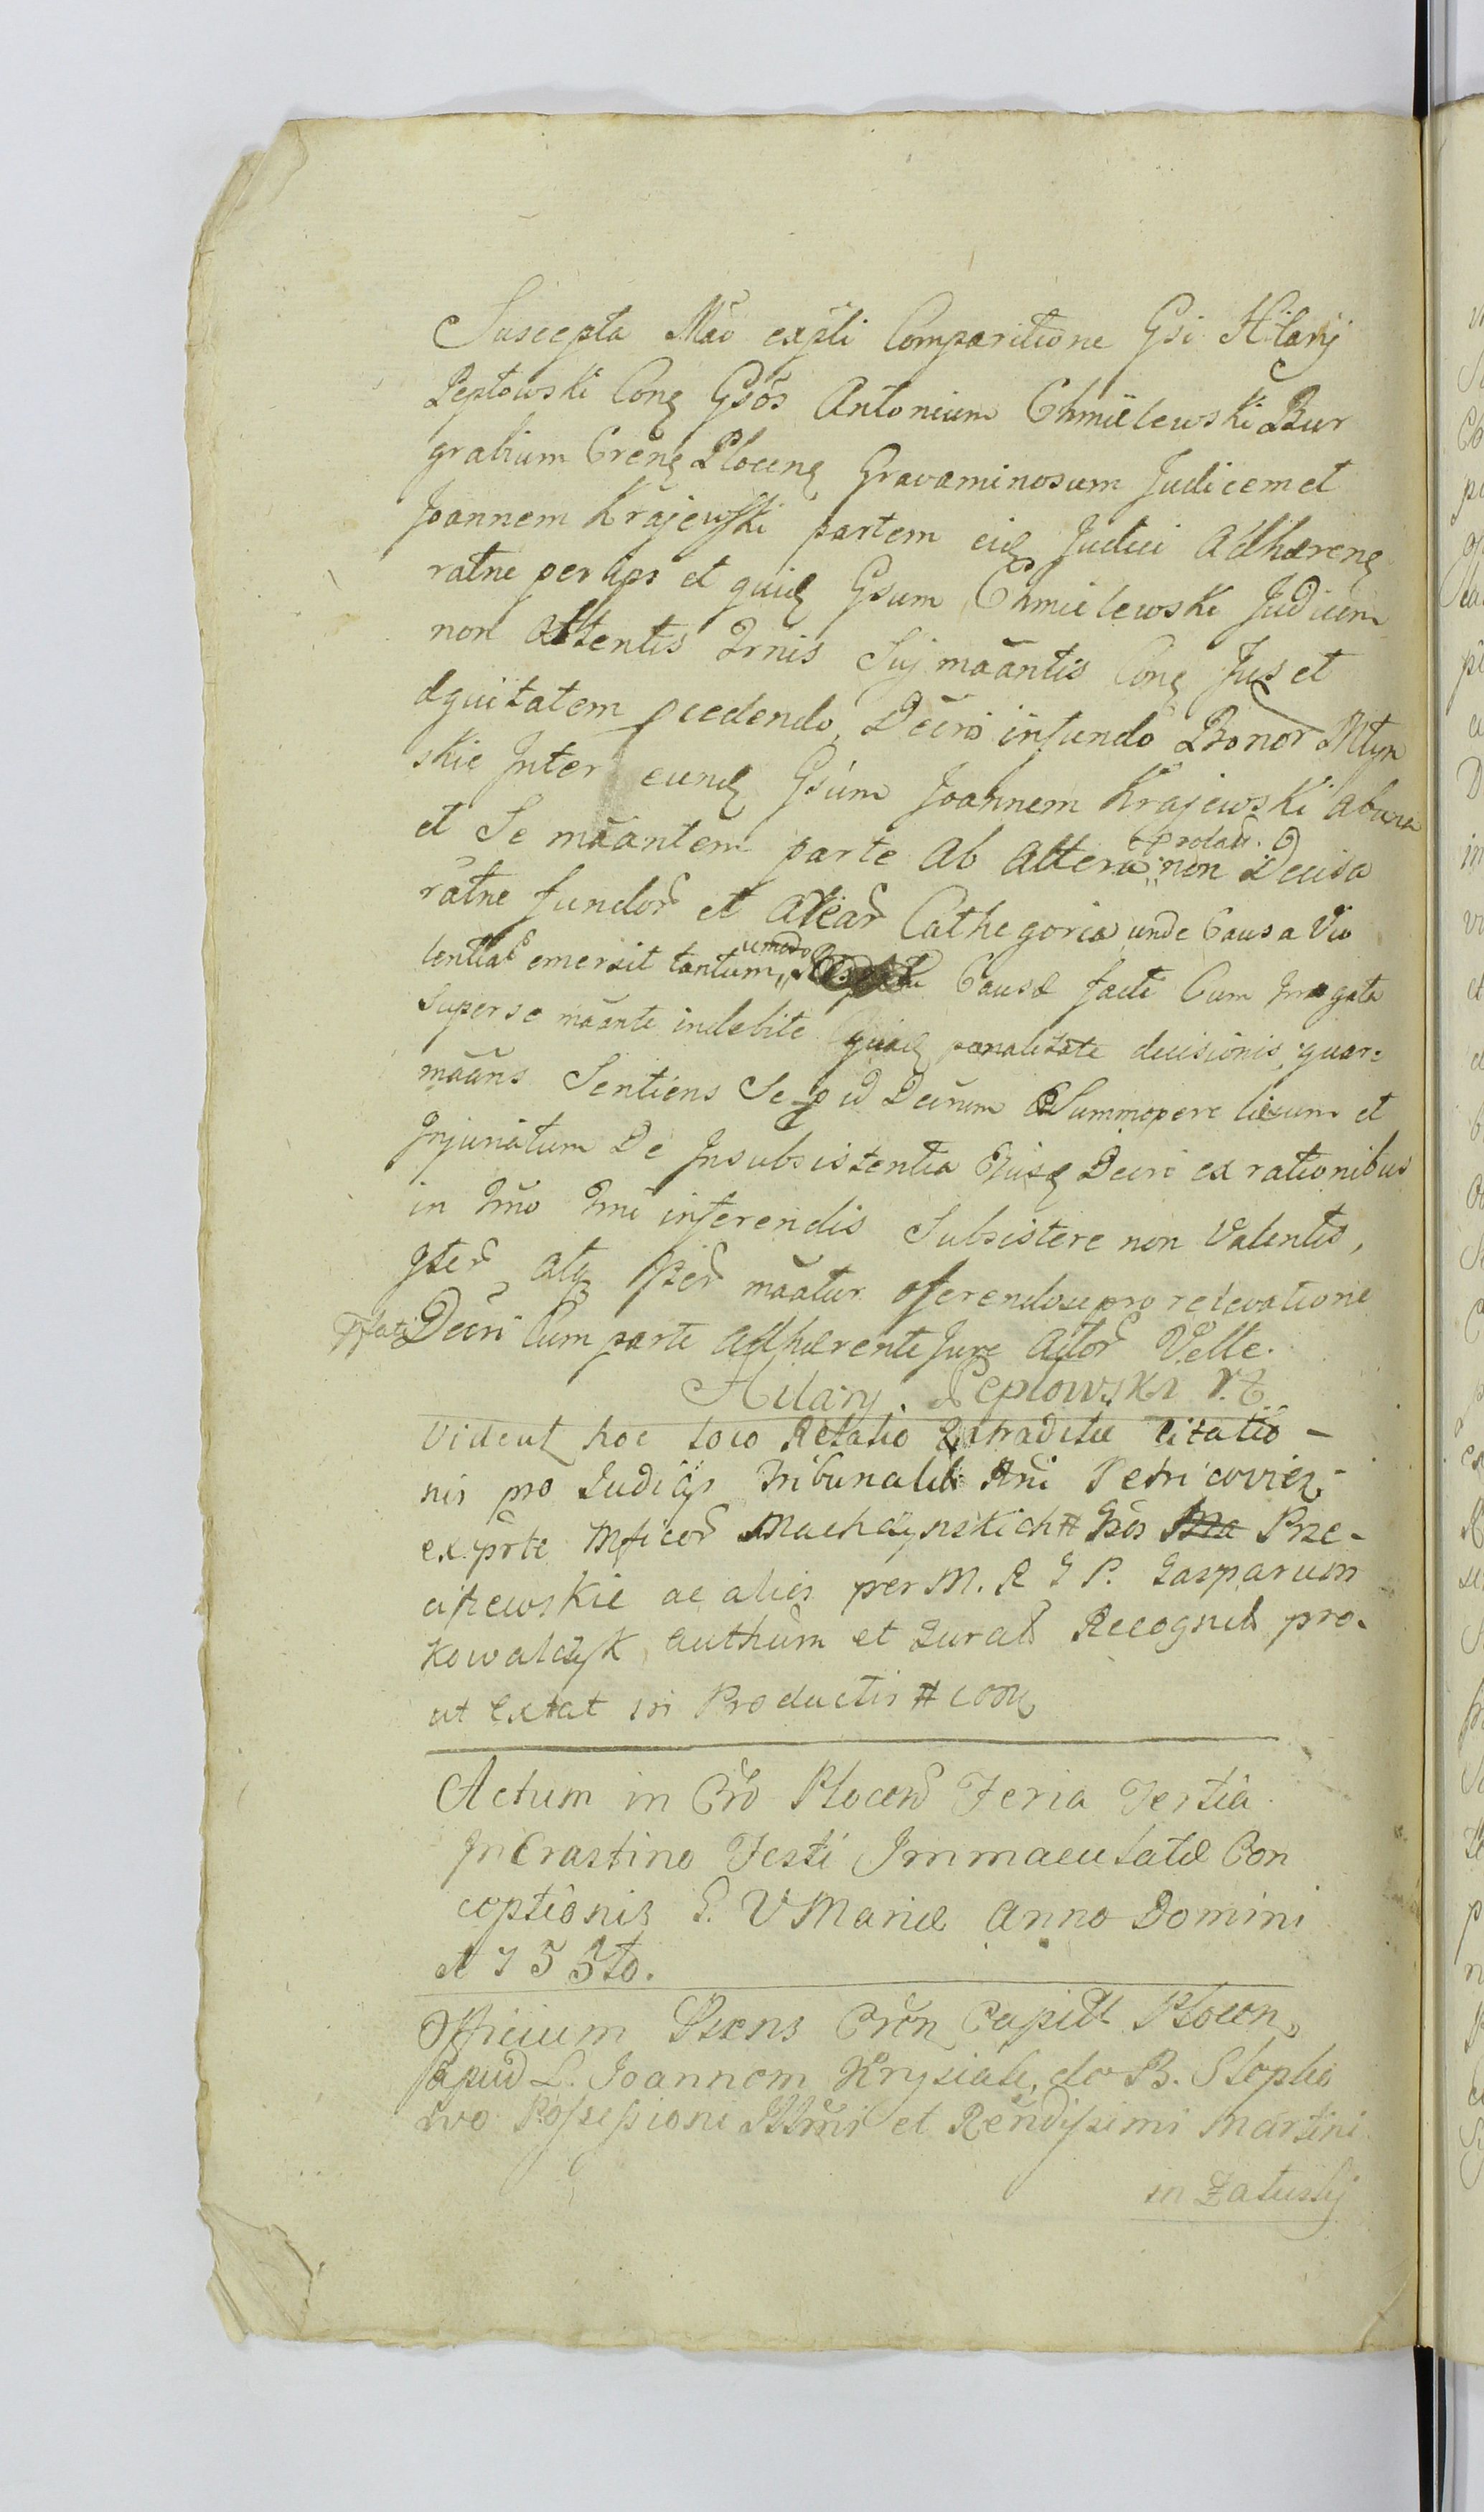 Suscepta Mão expĩti Comparitione Gsi Hilarij
Peptowski Conȝ Gsôs Antonium Chmielewski Bur
grabium Crenȝ Plocenȝ Gravaminosum Judicem et
Joannem Krajewski partem eidȝ Judici Adhærenȝ
ratne per Ips et quidȝ Gsum Chmielewski Judicem
non attentis Irnis Suj mãantis Conȝ Jus et
æquitatem pcedendo, Decri infundo Bonor Młyn
skie Inter eundȝ Gsum Joannem Krajewski ab una
et Se mãantem parte ab altera prolati non Decisa
ratne fundor et Arear Cathegoria unde Causa Vio
lentiar emersit tantum umodo Causæ facti Cum Irrogata
Superse mãante indebite quadȝ pœnalitate decisionis, quare
mãans Sentiens Se p id Decrum Summopere læsum et
Injuriatum De Insubsistentia Ejusȝ Decri ex rationibus
in Irno Irni inferendis Subsistere non Valentis,
Ister atq Iter mãatur offerendo se pro relevatione
pfati Decri Cum parte adhærente Jure Actor Velle.
Hilary Peptowski
Videut hoc loco Relatio Extraditæ Citatio-
nis pro Judiciis Tribunalib Rni Petricovien
exprte Mficor Machczynskich # Gsôs Prze-
ciszewskie ac alies per M. R I P. Gasparum
Kowalczyk authum et Jurat Recognit pro-
ut Extat in Productis # conȝ
Actum in Cro Plocen Feria Tertia
In Crastino Festi Immaculatæ Con
ceptionis B. V Mariæ Anno Domini
1755to.
Officium Præns Cren Capitl Plocen,
apud L. Joannem Krysiak, de B. Slopho
wo Possessioni Illrmi et Rendissimi Martini
in Załuskij